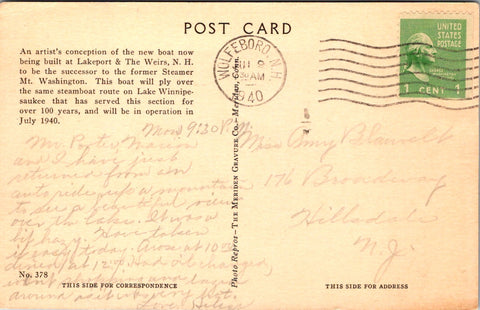 POST CARD
An artist's conception of the new boat now
being built at Lakeport & The Weirs, N. H.
to be the successor to the former Steamer
Mt. Washington. This boat will ply over
the same steamboat route on Lake Winnipe-
saukee that has served this section for
over 100 years, and will be in operation in
July 1940.
WOLFEBORO, N.H.
AM
1940
UNITED
STATES
POSTAGE
1 CENT 1
Mon. 9:30 P.M.
Mr. Porter, Marion
and I have just
returned from an
auto ride up a mountain
to see a beautiful view
over the lake. It was a
bit hazy. Have taken
it easy today. Arose at 10:30
dined at 12:00 Had it changed,
went and
around as it was very hot.
Love,
Miss Amy Blauvelt
176 Broadway
Hillsdale
N. J.
Photo Reprot-The Meriden Gravure Co.-Meriden, Conn.
No. 378
THIS SIDE FOR CORRESPONDENCE
THIS SIDE FOR ADDRESS